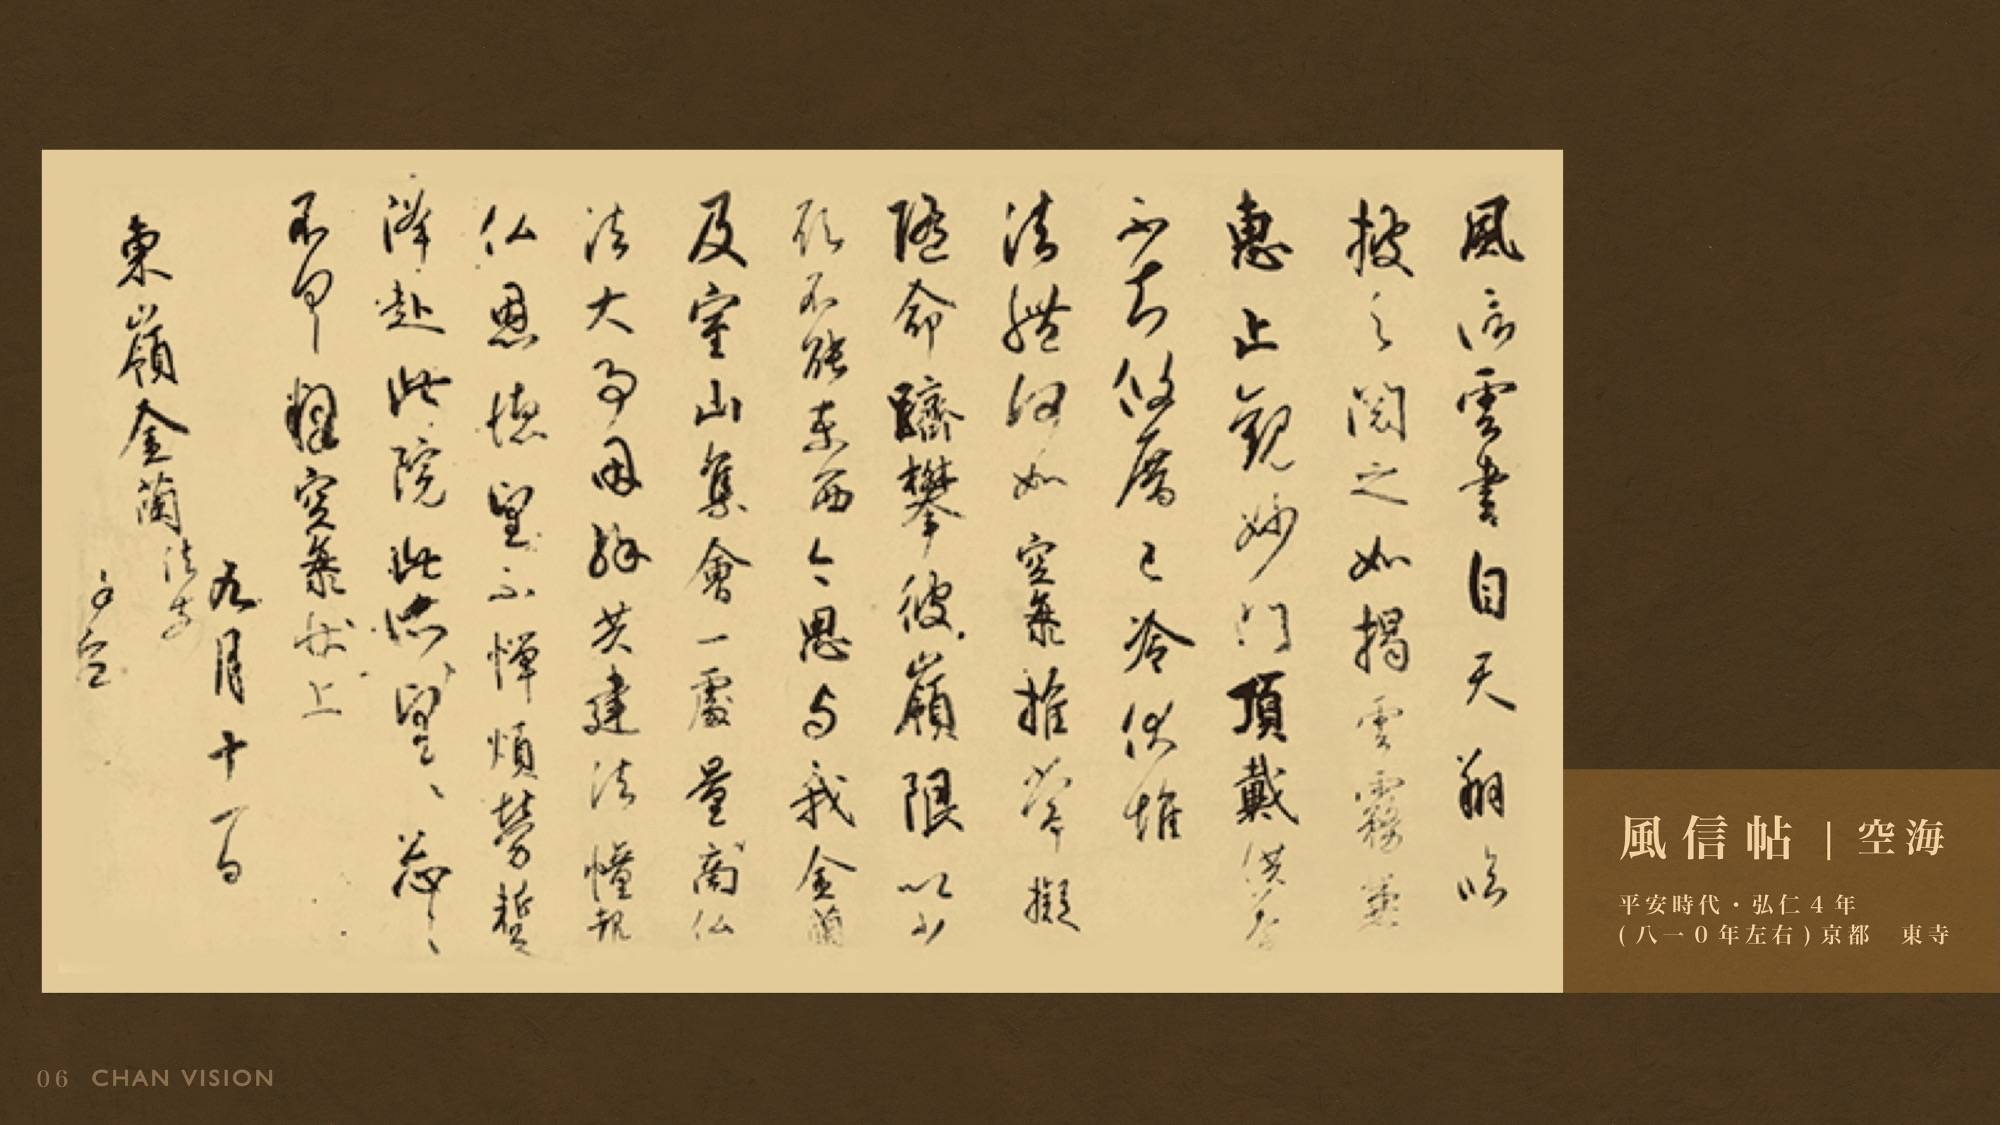 風信雲書自天翔臨
披之閲之如揭雲霧兼
惠止觀妙門頂戴供養
不知攸厝已冷伏惟
法體何如空海推常擬
隨命躋攀彼嶺限以少
願不能東西今思与我金蘭
及室山集會一處量商仏
法大事因緣共建法幢報
仏恩德望不憚煩勞蹔
降赴此院此所望々々忩々
不具釋空海狀上
九月十一日
東嶺金蘭法前
謹空
風信帖｜空海
平安時代・弘仁4年
(八一0年左右)京都 東寺
06 CHAN VISION